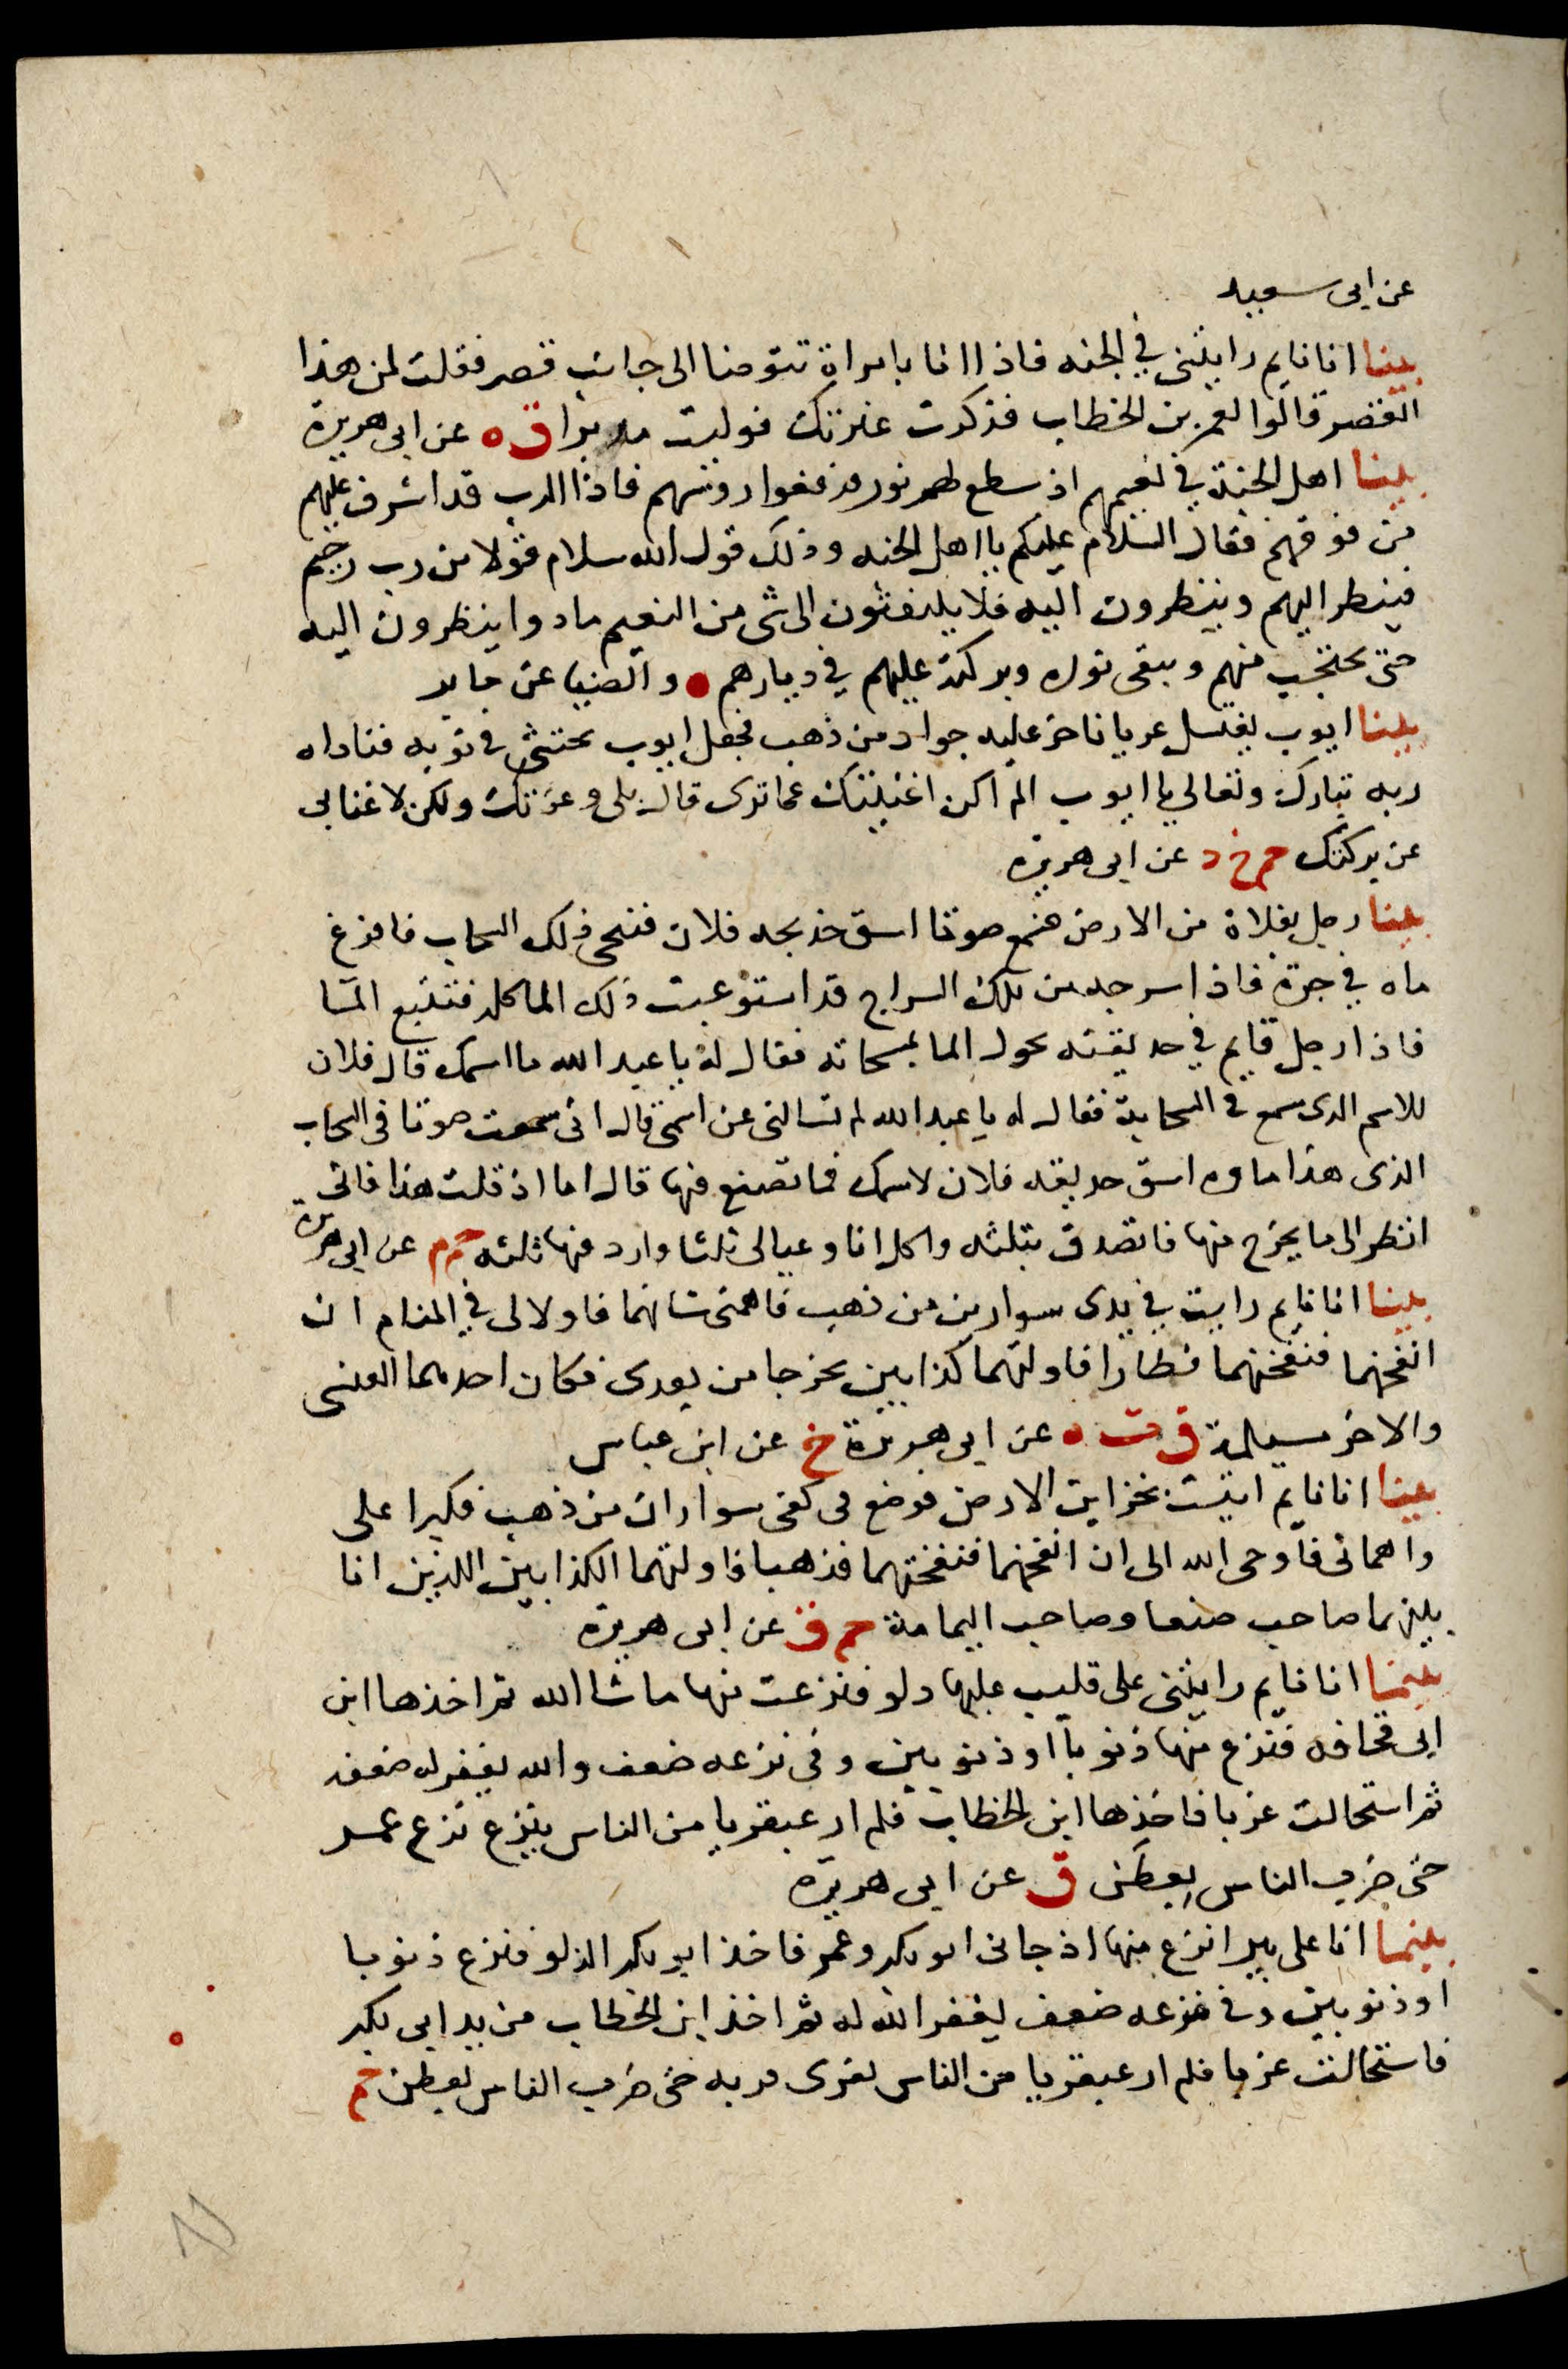 عن ابى سعيد
بينا انا نايم رايتنى في الجنه فاذا انا بامراة تتوضا الى جانب قصر فقلت لمن هذا
القصر قالوا لعمر بن الخطاب فذكرت غيرتك فوليت مدبرا ق ه عن ابى هريرة
بينا اهل الجنة في نعيمهم اذ سطع لهم نور فرفعوا روسهم فاذا الرب قد اشرف عليهم
من فوقهم فقال السلام عليكم يا اهل الجنه وذلك قول الله سلام قولا من رب رحيم
فينظر اليهم وينظرون اليه فلا يلتفتون الى شى من النعيم ما دوا ينظرون اليه
حتى يحتجب منهم ويبقى نوره وبركته عليهم في ديارهم ه والضيا عن جابر
بينا ايوب يغتسل عريانا خر عليه جراد من ذهب فجعل ايوب يحتثى في ثوبه فناداه
ربه تبارك وتعالى يا ايوب الم اكن اغنيتك عما ترى قال بلى وعزتك ولكن لا غنا بى
عن بركتك حم خ د عن ابى هريرة
بينا رجل بفلاة من الارض فسمع صوتا اسق حديقه فلان فتنحى ذلك السحاب فافرغ
ماه في حرة فاذا سرجه من تلك السراج قد استوعبت ذلك الما كله فتتبع الما
فاذا رجل قايم في حديقته يحول الما بمسحاته فقال له يا عبد الله ما اسمك قال فلان
للاسم الذى سمع في السحابة فقال له يا عبد الله لم تسالنى عن اسمى قال انى سمعت صوتا في السحاب
الذى هذا ماوه اسق حديقه فلان لاسمك فما تصنع فيها قال اما اذ قلت هذا فانى
انظر الى ما يخرج منها فاتصدق بثلثه واكل انا وعيالى ثلثا وارد فيها ثلثه حم م عن ابى هريرة
بينا انا نايم رايت في يدى سوارين من ذهب فاهمنى شانهما فاوحى الى في المنام ان
انفخهما فنفختهما فطارا فاولتهما كذابين يخرجا من بعدى فكان احدهما العنسى
والاخر مسيلمة ق ت ه عن ابى هريرة خ عن ابن عباس
بينا انا نايم اتيت بخزاين الارض فوضع في كفى سواران من ذهب فكبرا على
واهمانى فاوحى الله الى ان انفخهما فنفختهما فذهبا فاولتهما الكذابين اللذين انا
بينهما صاحب صنعا وصاحب اليمامة حم ق عن ابى هريرة
بينما انا نايم رايتنى على قليب عليها دلو فنزعت منها ما شا الله ثم اخذها ابن
ابى قحافه فنزع منها ذنوبا او ذنوبين وفى نزعه ضعف والله يغفر له ضعفه
ثم استحالت غربا فاخذها ابن الخطاب فلم ار عبقريا من الناس ينزع نزع عمر
حتى ضرب الناس بعطن ق عن ابى هريرة
بينما انا على بير انزع منها اذ جانى ابو بكر وعمر فاخذ ابو بكر الدلو فنزع ذنوبا
او ذنوبين وفي نزعه ضعف ليغفر الله له ثم اخذ ابن الخطاب من يد ابى بكر
فاستحالت غربا فلم ار عبقريا من الناس يفرى فريه حتى ضرب الناس بعطن حم